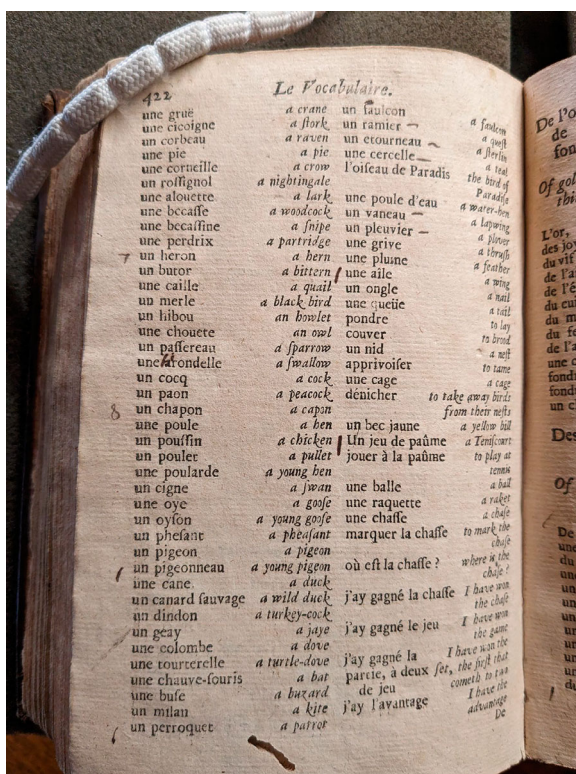 422
Le Vocabulaire.
une gruë a crane
une cicoigne a stork
un corbeau a raven
une pie a pie
une corneille a crow
un rossignol a nightingale
une alouette a lark
une becasse a woodcock
une becassine a snipe
une perdrix a partridge
un heron a hern
un butor a bittern
une caille a quail
un merle a black bird
un hibou an howlet
une chouete an owl
un passereau a sparrow
une arondelle a swallow
un cocq a cock
un paon a peacock
un chapon a capon
une poule a hen
un poussin a chicken
un poulet a pullet
une poularde a young hen
un cigne a swan
une oye a goose
un oyson a young goose
un phesant a pheasant
un pigeon a pigeon
un pigeonneau a young pigeon
une cane. a duck
un canard sauvage a wild duck
un dindon a turkey-cock
un geay a jaye
une colombe a dove
une tourterelle a turtle-dove
une chauve-souris a bat
une buse a buzard
un milan a kite
un perroquet a parrot
un faulcon a faulcon
un ramier a quest
un etourneau a sterlin
une cercelle a teal
l'oiseau de Paradis the bird of
Paradise
une poule d'eau a water-hen
un vaneau a lapwing
un pleuvier a plover
une grive a thrush
une plume a feather
une aile a wing
un ongle a nail
une queüe a tail
pondre to lay
couver to brood
un nid a nest
apprivoiser to tame
une cage a cage
dénicher to take away birds
from their nests
un bec jaune a yellow bill
Un jeu de paûme a Teniscourt
jouer à la paûme to play at
tennis
une balle a ball
une raquette a raket
une chasse a chase
marquer la chasse to mark the
chase
où est la chasse ? where is the
chase ?
j'ay gagné la chasse I have won
the chase
j'ay gagné le jeu I have won
the game
j'ay gagné la I have won the
partie, à deux set, the first that
de jeu cometh to two
j'ay l'avantage I have the
advantage
De
De l'o
de
fon
Of gol
thi
L'or,
des joy
du vif
de l'a
de l'é
du cui
du m
du fe
de l'a
une c
fondi
fond
un c
Des
Of
De
une
du